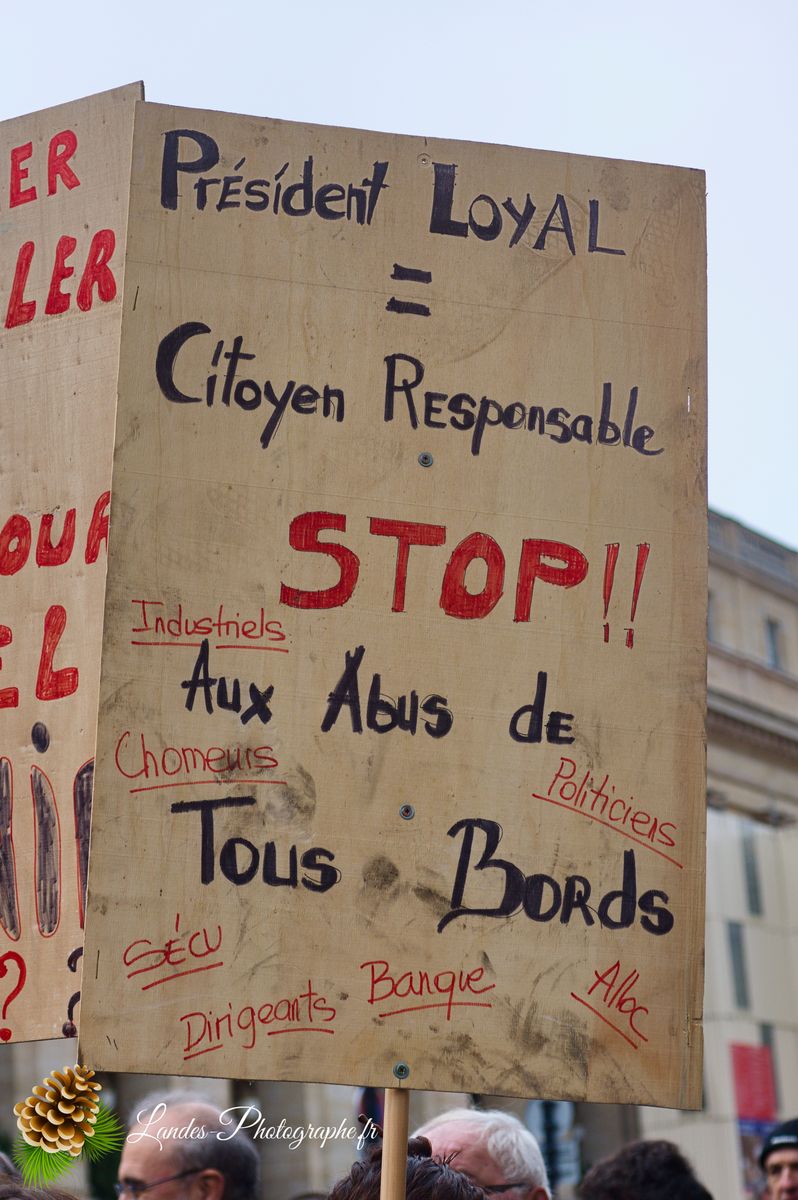 ER
LER
OUR
EL
?
?
Président Loyal
=
Citoyen Responsable
STOP!!
Industriels
Aux Abus de
Chomeurs
Politiciens
Tous Bords
SÉCU
Dirigeants
Banque
Alloc
Landes-Photographe.fr